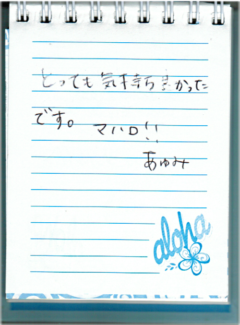 とっても気持ち良かった
です。 マハロ!!
あゆみ
aloha